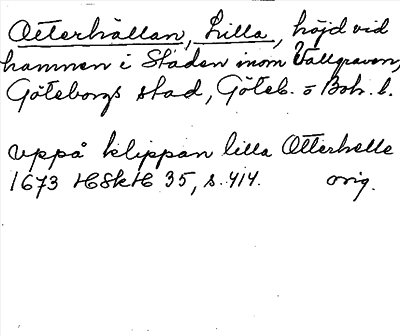 Otterhällan, Lilla, höjd vid
hamnen i Staden inom Vallgraven,
Göteborgs stad, Göteb. = Boh. l.
uppå klippan lilla Otterhelle
1673 HSkH 35, s. 414. orig.